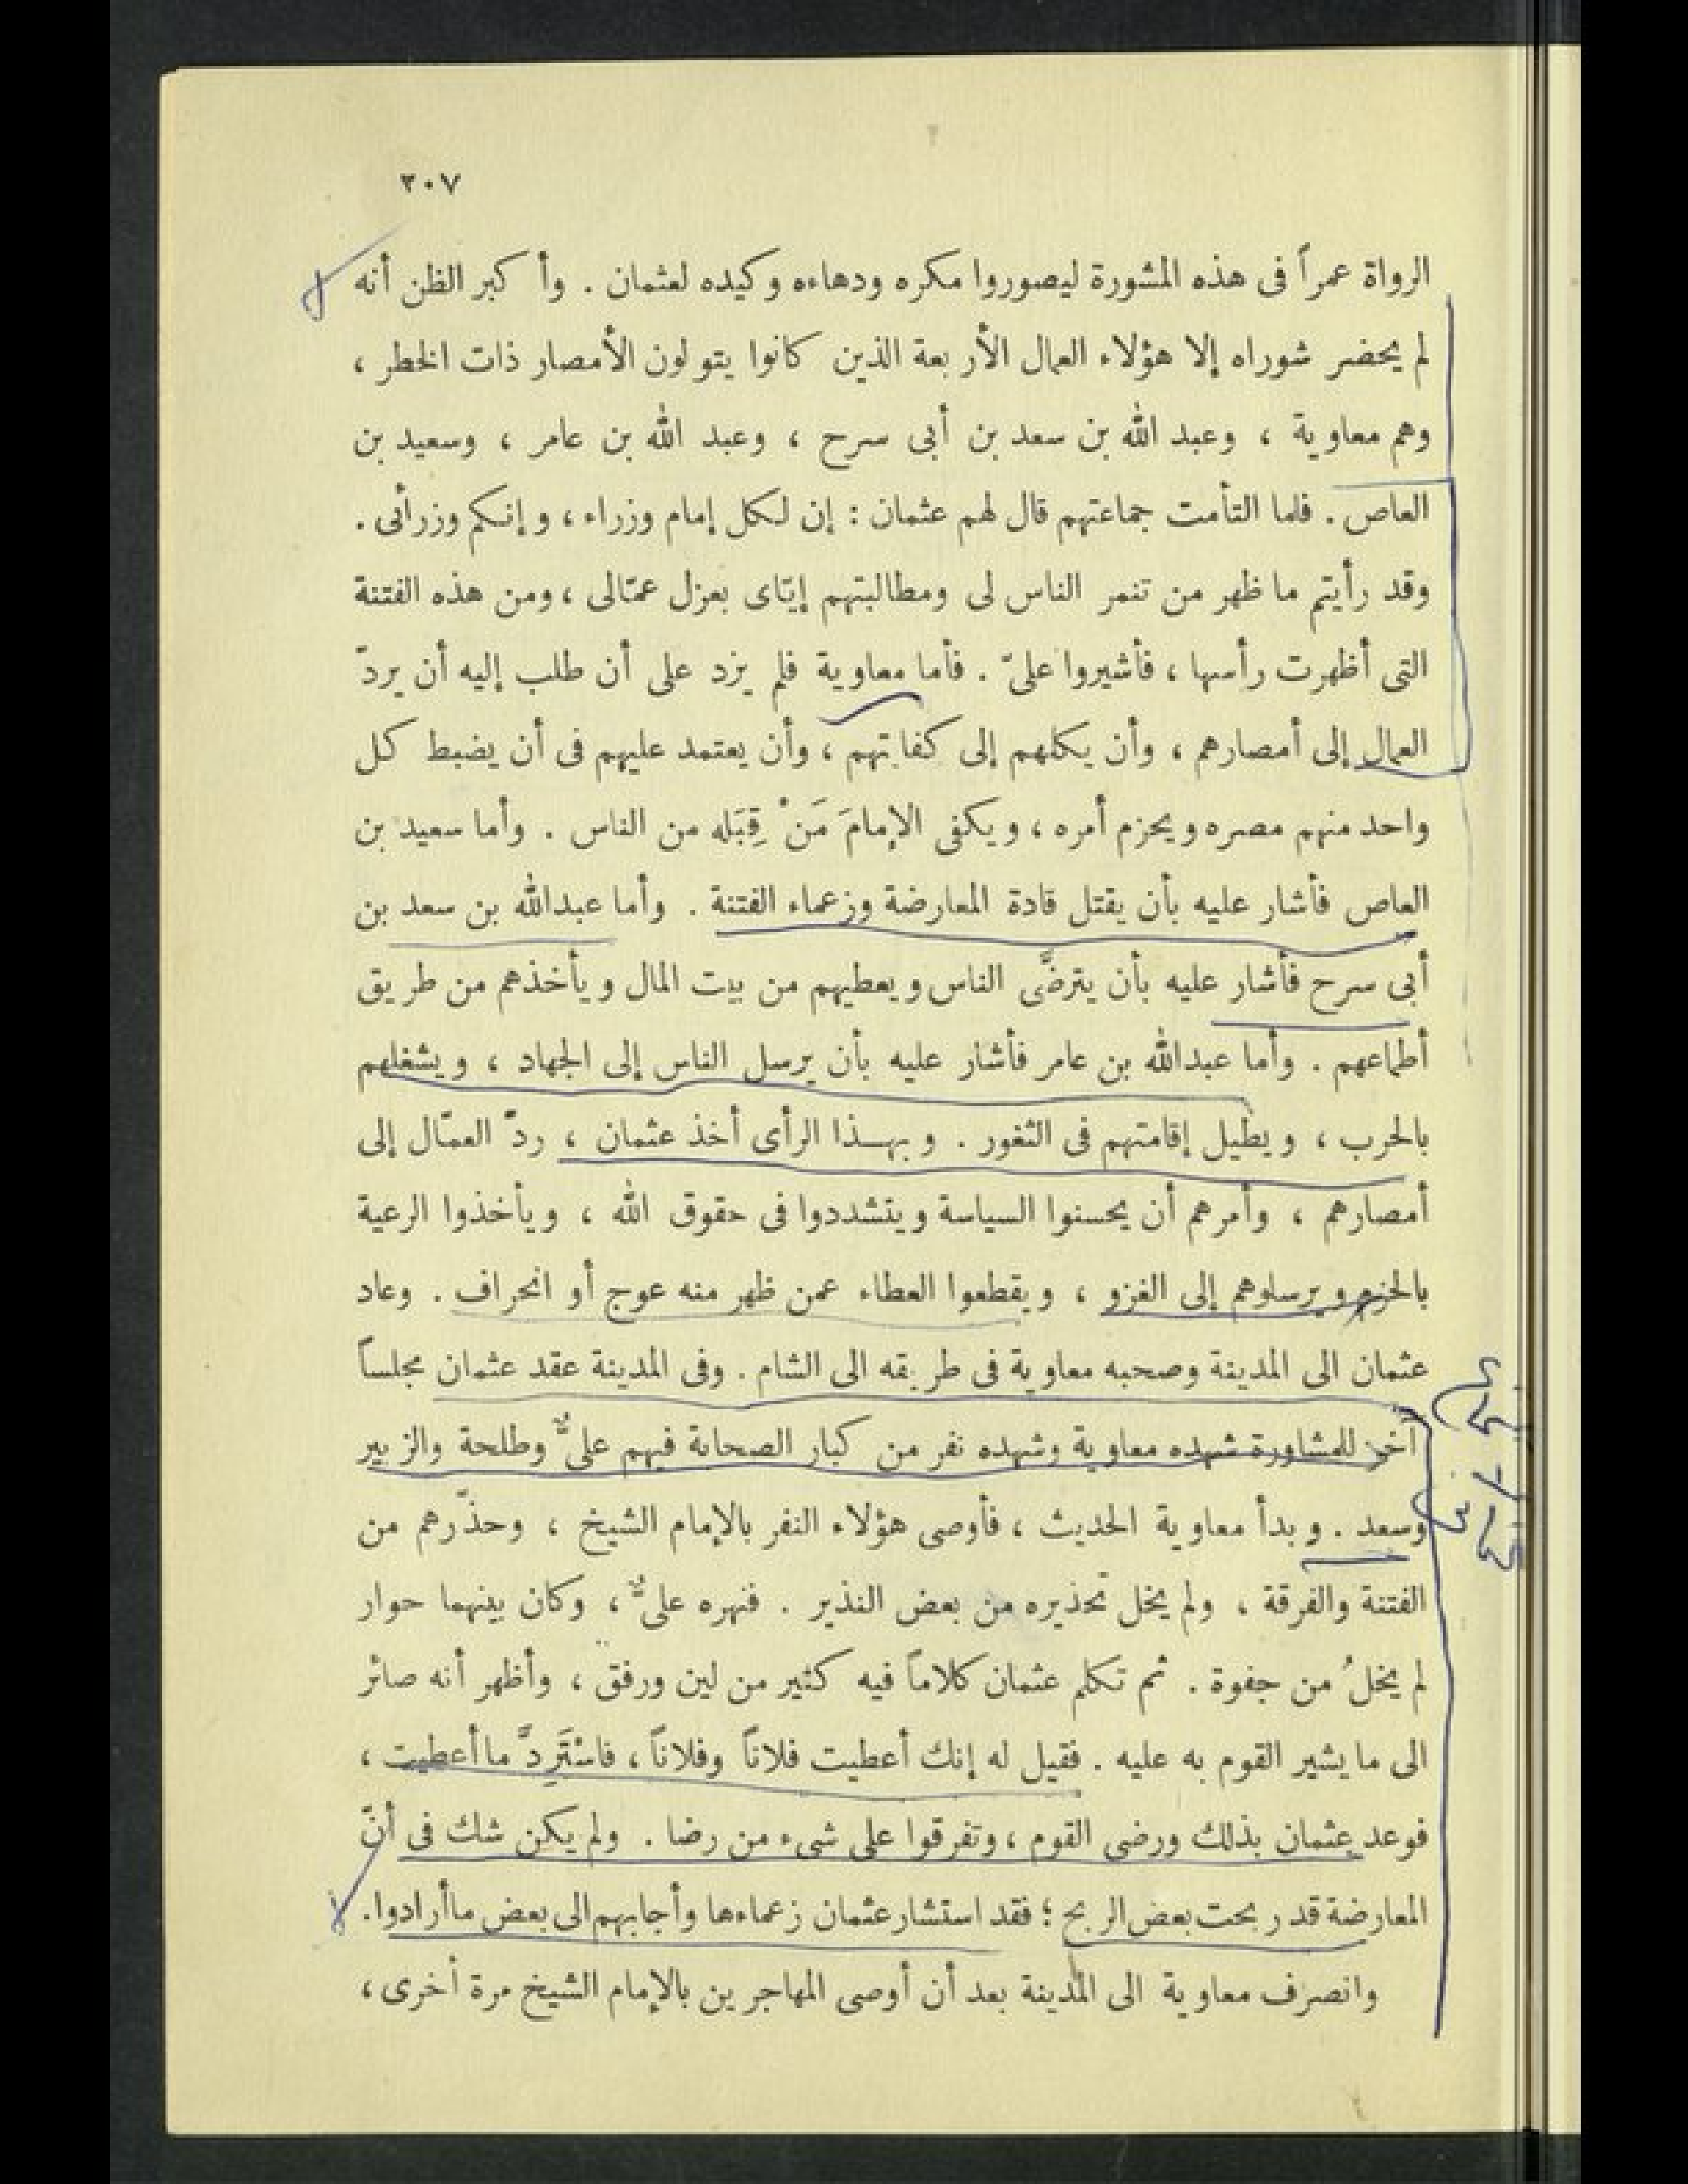 ٢٠٧
الرواة عمراً فى هذه المشورة ليصوروا مكره ودهاءه وكيده لعثمان . وأكبر الظن أنه
لم يحضر شوراه إلا هؤلاء العمال الأربعة الذين كانوا يتولون الأمصار ذات الخطر ،
وهم معاوية ، وعبد الله بن سعد بن أبى سرح ، وعبد الله بن عامر ، وسعيد بن
العاص . فلما التأمت جماعتهم قال لهم عثمان : إن لكل إمام وزراء ، وإنكم وزرائى .
وقد رأيتم ما ظهر من تنمر الناس لى ومطالبتهم إيّاى بعزل عمّالى ، ومن هذه الفتنة
التى أظهرت رأسها ، فأشيروا علىّ . فأما معاوية فلم يزد على أن طلب إليه أن يردّ
العمال إلى أمصارهم ، وأن يكلهم إلى كفايتهم ، وأن يعتمد عليهم فى أن يضبط كل
واحد منهم مصره ويحزم أمره ، ويكفى الإمامَ مَنْ قِبَله من الناس . وأما سعيد بن
العاص فأشار عليه بأن يقتل قادة المعارضة وزعماء الفتنة . وأما عبدالله بن سعد بن
أبى سرح فأشار عليه بأن يترضَّى الناس ويعطيهم من بيت المال ويأخذهم من طريق
أطماعهم . وأما عبدالله بن عامر فأشار عليه بأن يرسل الناس إلى الجهاد ، ويشغلهم
بالحرب ، ويطيل إقامتهم فى الثغور . وبهذا الرأى أخذ عثمان ، ردّ العمّال إلى
أمصارهم ، وأمرهم أن يحسنوا السياسة ويتشددوا فى حقوق الله ، ويأخذوا الرعية
بالحزم ويرسلوهم إلى الغزو ، ويقطعوا العطاء عمن ظهر منه عوج أو انحراف . وعاد
عثمان الى المدينة وصحبه معاوية فى طريقه الى الشام . وفى المدينة عقد عثمان مجلساً
آخر للمشاورة شهده معاوية وشهده نفر من كبار الصحابة فيهم علىٌّ وطلحة والزبير
وسعد . وبدأ معاوية الحديث ، فأوصى هؤلاء النفر بالإمام الشيخ ، وحذّرهم من
الفتنة والفرقة ، ولم يخل تحذيره من بعض النذير . فنهره علىٌّ ، وكان بينهما حوار
لم يخلُ من جفوة . ثم تكلم عثمان كلاماً فيه كثير من لين ورفق ، وأظهر أنه صائر
الى ما يشير القوم به عليه . فقيل له إنك أعطيت فلاناً وفلاناً ، فاسْتَرِدَّ ما أعطيت ،
فوعد عثمان بذلك ورضى القوم ، وتفرقوا على شىء من رضا . ولم يكن شك فى أنّ
المعارضة قد ربحت بعض الربح ؛ فقد استشار عثمان زعماءها وأجابهم الى بعض ما أرادوا.
وانصرف معاوية الى المدينة بعد أن أوصى المهاجرين بالإمام الشيخ مرة أخرى ،